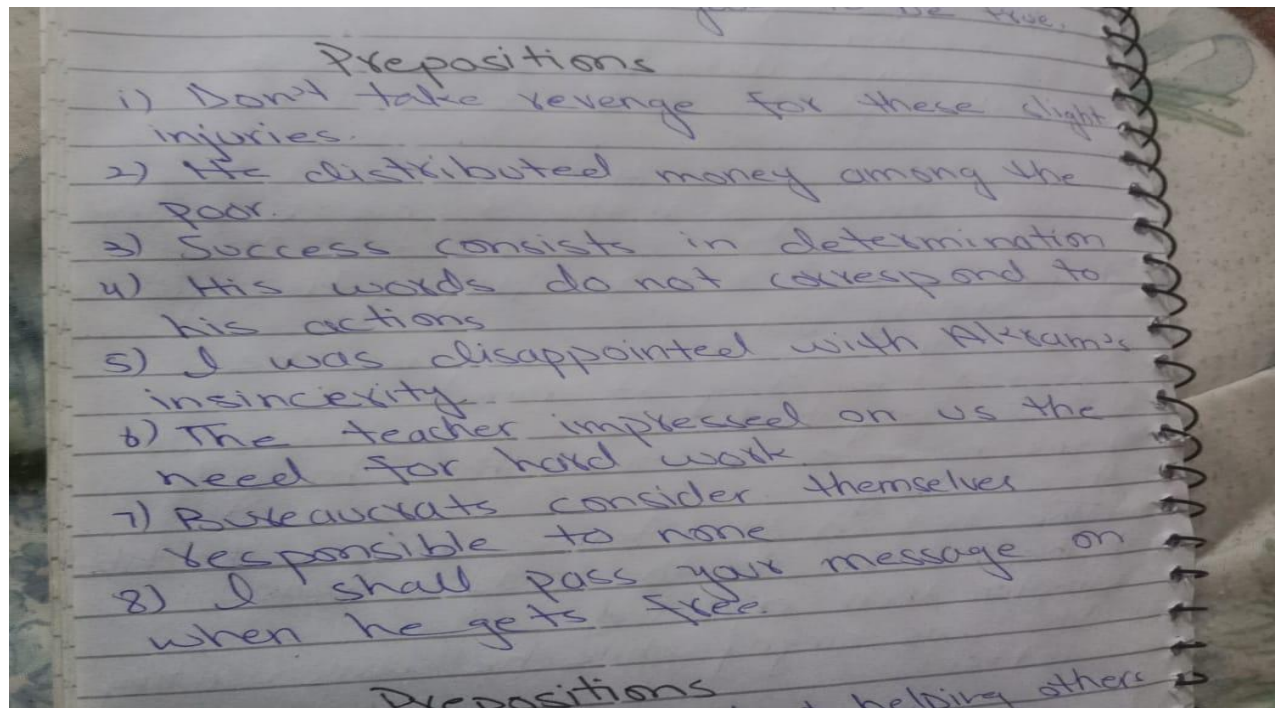 be true.
Prepositions
1) Don't take revenge for these slight
injuries.
2) He distributed money among the
poor.
3) Success consists in determination
4) His words do not correspond to
his actions
5) I was disappointed with Akram's
insincerity
6) The teacher impressed on us the
need for hard work
7) Bureaucrats consider themselves
responsible to none
8) I shall pass your message on
when he gets free.
Prepositions
helping others